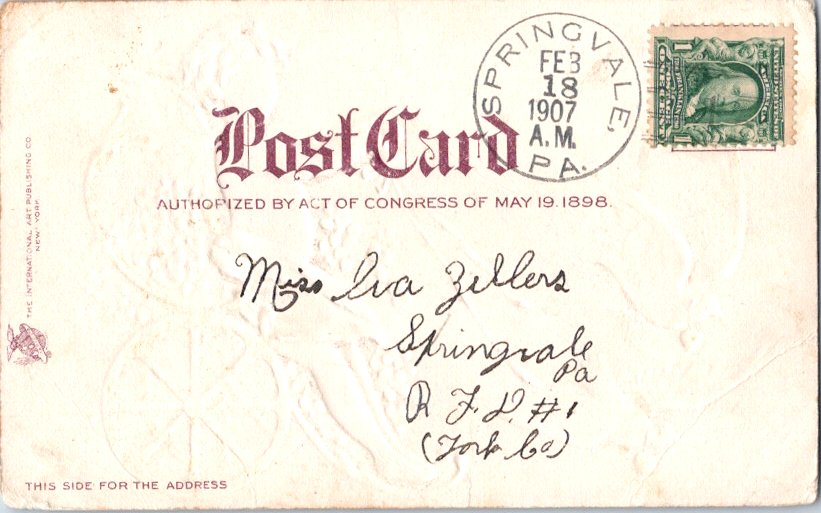 SPRINGVALE,
FEB
18
1907
A.M.
PA.
1
1
Post Card
AUTHORIZED BY ACT OF CONGRESS OF MAY 19.1898.
THE INTERNATIONAL ART PUBLISHING CO
NEW YORK
Miss Iva Zellers
Springvale
Pa
R. F. D. #1
(York Co)
THIS SIDE FOR THE ADDRESS